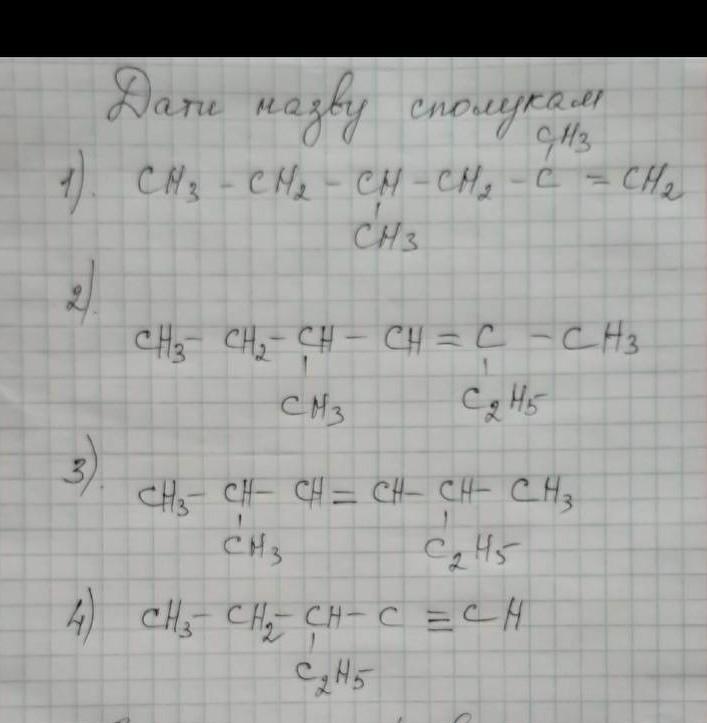 Дати назву сполукам
CH3
1). CH3 - CH2 - CH - CH2 - C = CH2
CH3
2).
CH3 - CH2 - CH - CH = C - CH3
CH3 C2H5
3).
CH3 - CH - CH = CH - CH - CH3
CH3 C2H5
4) CH3 - CH2 - CH - C ≡ CH
C2H5